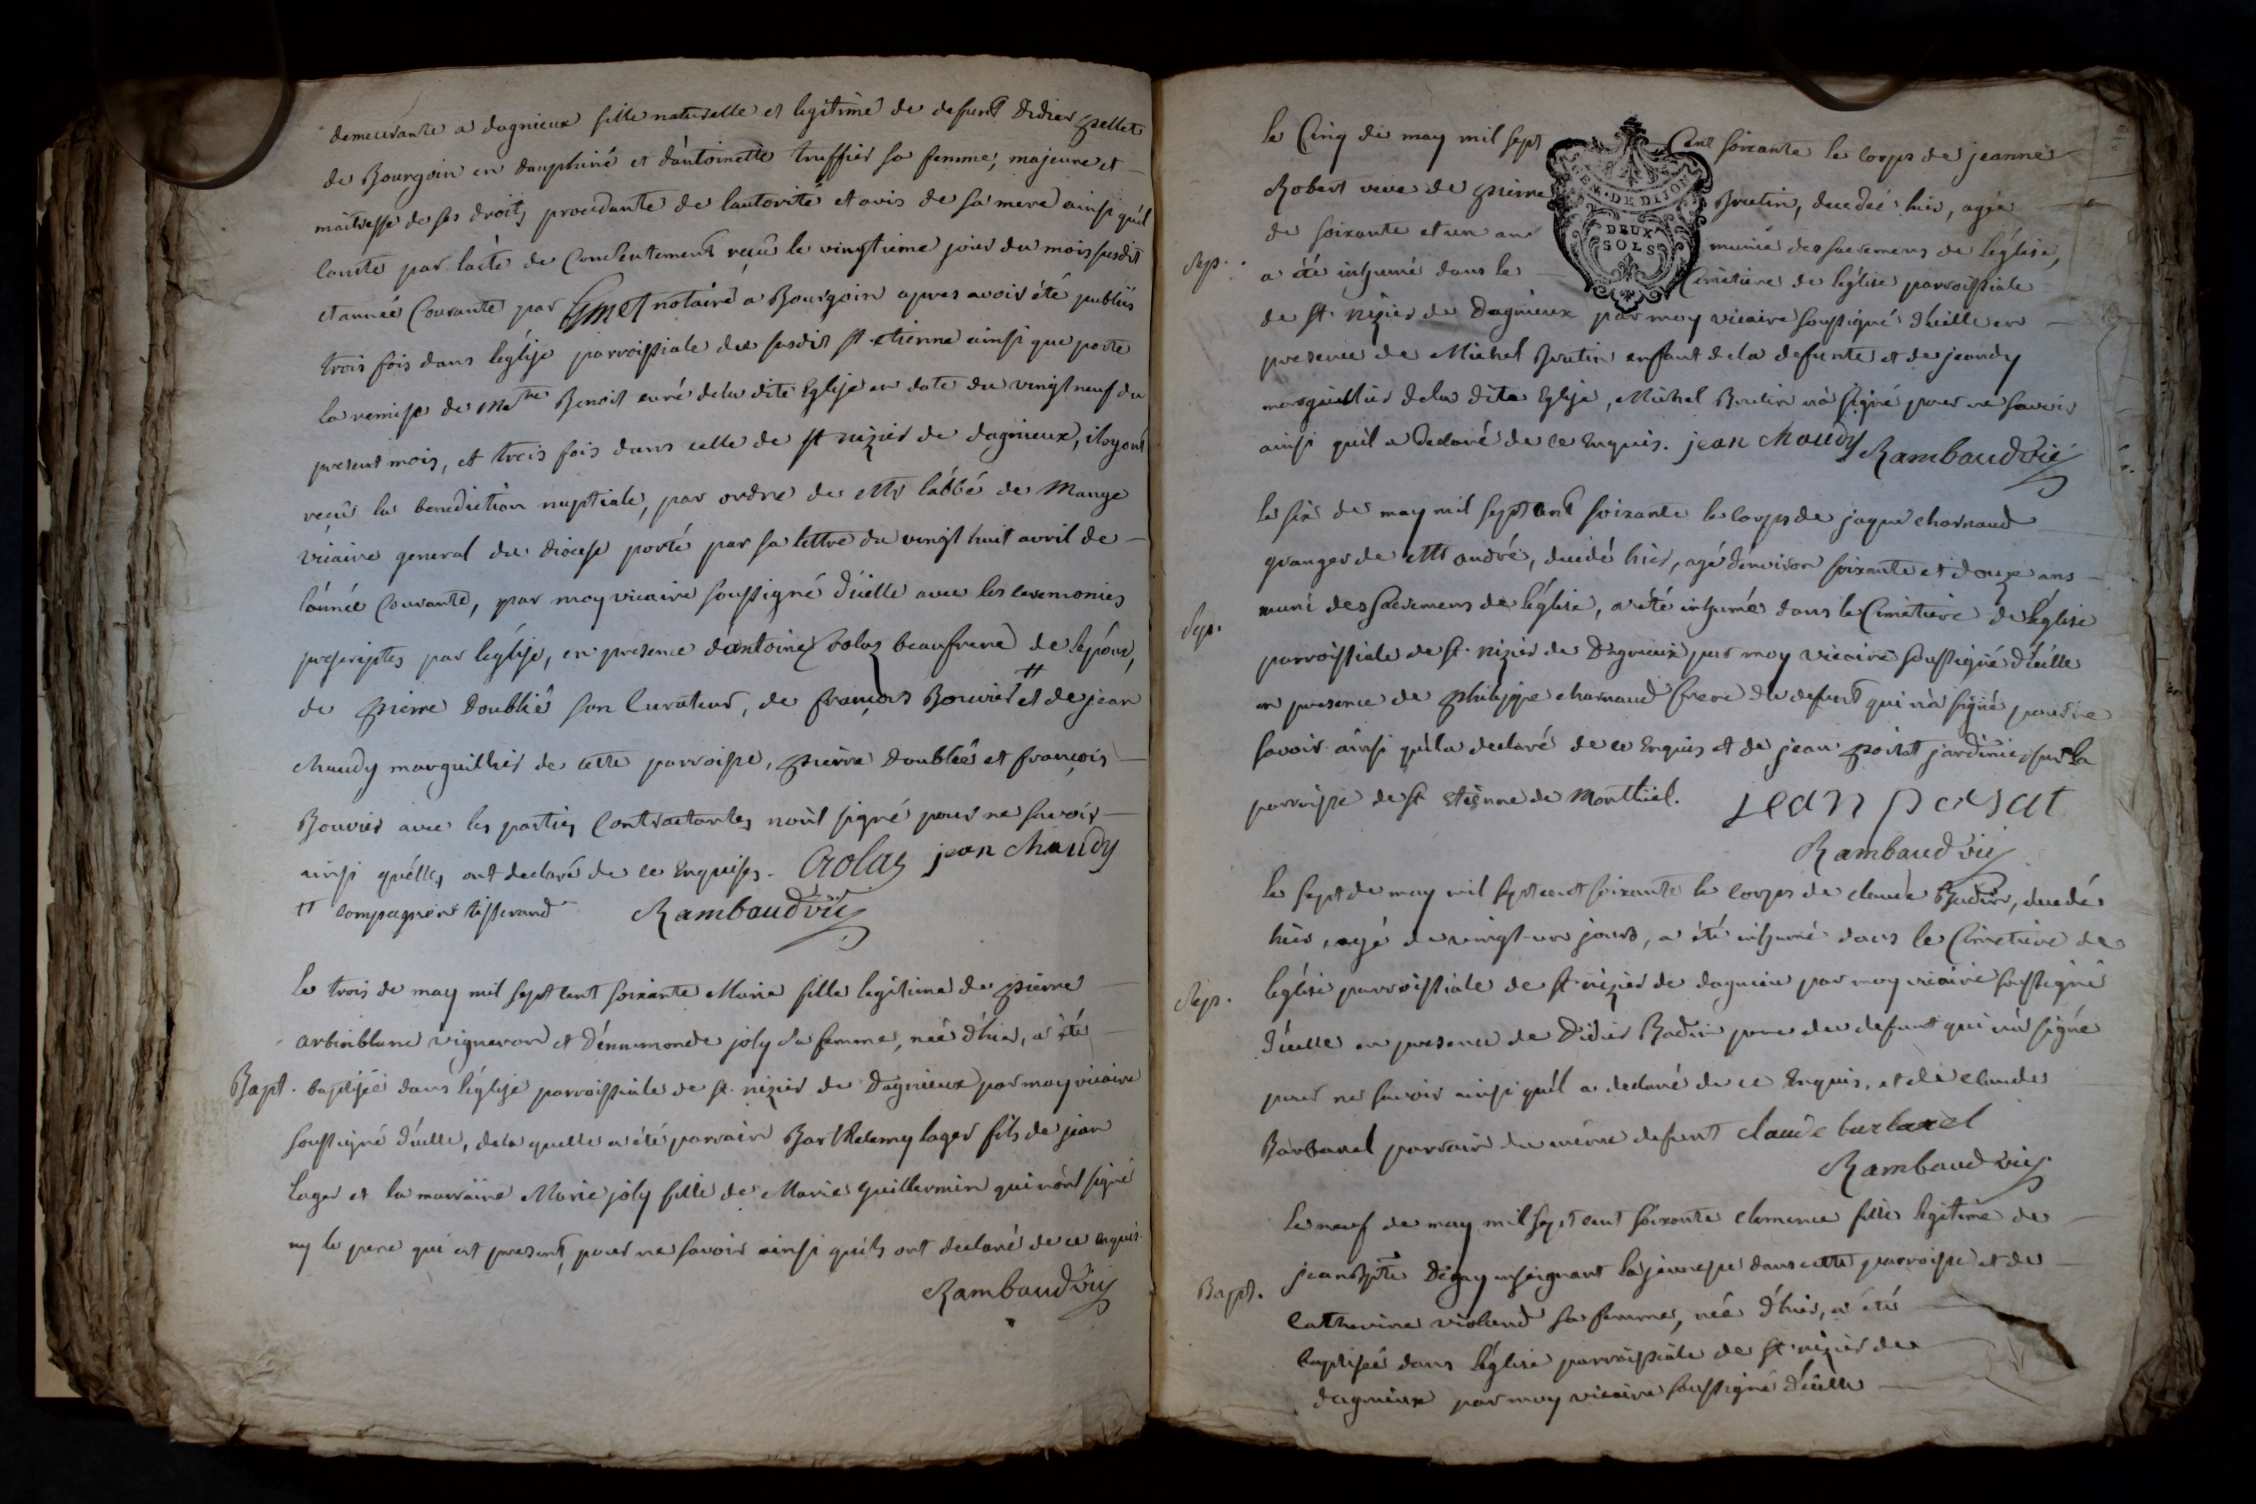 demeurante a dagnieux fille naturelle et legitime de defunt Didier pellet
de Bourgoin en dauphiné et d'antoinette truffier sa femme, majeure et
maitresse de ses droits procedante de l'autorité et avis de sa mere ainsi qu'il
conste par l'acte de Consentement reçû le vingtieme jour du mois susdit
et année Courante par notaire a Bourgoin apres avoir été publiés
trois fois dans l'eglise parroissiale du susdit st etienne ainsi que porte
la remise de Me Benoit curé de la dite Eglise en date du vingt neuf du
present mois, et trois fois dans celle de st nizier de dagnieux, ils ont
reçû la benediction nuptiale, par ordre de Mr l'abbé de Mange
vicaire general du diocese porté par sa lettre du vingt huit avril de
l'année Courante, par moy vicaire soussigné d'icelle avec les ceremonies
prescriptes par l'eglise, en presence d'antoine Crolas beaufrere de l'epoux,
de pierre doublié son Curateur, de françois Bouvier †† et de jean
chaudy marguillier de cette parroisse, pierre doublié et françois
Bouvier avec les parties Contractantes n'ont signé pour ne savoir
ainsi qu'elles ont declaré de ce Enquises. Crolas jean chaudy
†† compagnon tisserand Rambaud vic
le trois de may mil sept cent soixante Marie fille legitime de pierre
arbinblanc vigneron et d'ennemonde joly sa femme, née d'hier, a été
Bapt. baptisée dans l'église parroissiale de st nizier de Dagnieux par moy vicaire
soussigné d'icelle, de la quelle a été parrain Barthelemy lager fils de jean
Lager et la marraine Marie joly fille de Marie guillermin qui n'ont signé
ny le pere qui est present, pour ne savoir ainsi qu'ils ont declaré de ce enquis.
Rambaud vic
GEN. DE DIJON
DEUX SOLS
le Cinq de may mil sept Cent soixante le corps de jeanne
Robert veve de pierre Brutin, decedée hier, agée
de soixante et un ans munie des sacremens de l'église,
Sep. a été inhumé dans le Cimetiere de l'église parroissiale
de st nizier de Dagnieux par moy vicaire soussigné d'icelle en
presence de Michel Brutin enfant de la defunte et de jean chaudy
marguillier de la dite Eglise, Michel Brutin n'a signé pour ne savoir
ainsi qu'il a Declaré de ce Enquis. jean chaudy Rambaud vic
le six de may mil sept cent soixante le corps de jaque charnaud
granger de Mr andré, decedé hier, agé d'environ soixante et douze ans
muni des sacremens de l'église, a été inhumé dans le Cimetiere de l'église
Sep. parroissiale de st nizier de Dagnieux par moy vicaire soussigné d'icelle
en presence de philippe charnaud frere du defunt qui n'a signé pour ne
savoir ainsi qu'il a declaré de ce Enquis et de jean jardinier sur la
parroisse de st etienne de Montluel. jean
Rambaud vic
le sept de may mil sept cent soixante le corps de claude Badin, decedé
hier, agé de vingt-un jours, a été inhumé dans le Cimetiere de
Sep. l'église parroissiale de st nizier de dagnieu par moy vicaire soussigné
d'icelle en presence de Didier Badin pere du defunt qui n'a signé
pour ne savoir ainsi qu'il a declaré de ce Enquis, et de claude
Barbarel parrain du même defunt claude barbarel
Rambaud vic
le neuf de may mil sept cent soixante clemence fille legitime de
jean bpte enseignant la jeunesse dans cette parroisse et de
Bapt. Catherine violand sa femme, née d'hier, a été
baptisée dans l'église parroissiale de st nizier de
dagnieux par moy vicaire soussigné d'icelle